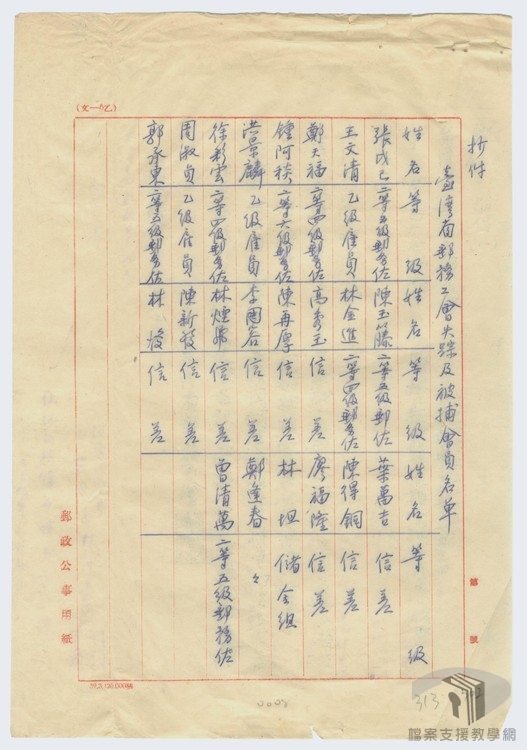 抄件
臺灣省郵務工會失踪及被捕會員名单
姓名 等級 姓名 等級 姓名 等級
張戊己 二等五級郵務佐 陳玉籐 二等五級郵佐 葉萬吉 信差
王文清 乙級雇員 林金進 二等四級郵務佐 陳得銅 信差
鄭天福 二等四級郵務佐 高秀玉 信差 廖福陸 信差
鍾阿棪 二等六級郵務佐 陳再厚 信差 林坦 儲金組
洪景麟 乙級雇員 李國容 信差 鄭逢春 〃
徐彩雲 二等四級郵務佐 林煙 信差 曾清萬 二等五級郵務佐
周淑貞 乙級雇員 陳新發 信差
郭承東 二等五級郵務佐 林 信差
(文—5乙)
第 號
郵政公事用紙
0008
313
檔案支援教學網